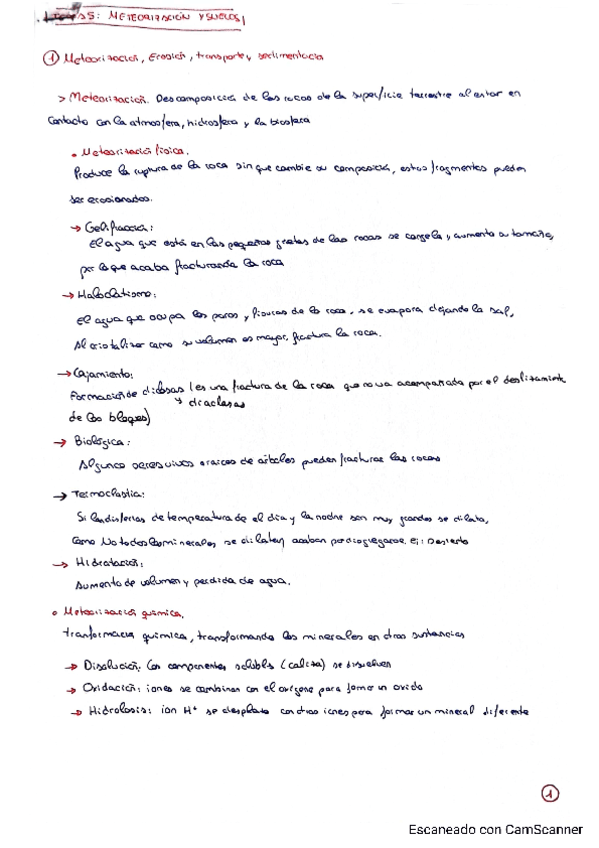 Tema 5: METEORIZACIÓN Y SUELOS
① Meteorización, Erosión, transporte y sedimentación
> Meteorización. Descomposición de las rocas de la superficie terrestre al estar en
contacto con la atmósfera, hidrosfera y la biosfera
• Meteorización física.
Produce la ruptura de la roca sin que cambie su composición, estos fragmentos pueden
ser erosionados.
→ Gelifracción:
El agua que está en las pequeñas grietas de las rocas se congela y aumenta su tamaño,
por lo que acaba fracturando la roca
→ Haloclatismo:
El agua que ocupa los poros y fisuras de la roca, se evapora dejando la sal,
Al cristalizar como su volumen es mayor, fractura la roca.
→ Cajamiento:
Formación de diclosas (es una fractura de la roca que no va acompañada por el deslizamiento
↘ diaclasas
de los bloques)
→ Biológica:
Algunos seres vivos o raices de árboles pueden fracturar las rocas
→ Termoclastia:
Si las diferias de temperatura de el día y la noche son muy grandes se dilata,
como No todos los minerales se dilatan acaban por disgregarse. ej: Desierto
→ Hidratación:
Aumento de volumen y perdida de agua.
• Meteorización química.
Tranformacia química, transformando los minerales en otras sustancias
→ Disolución: Con componentes solubles (calcita) se disuelven
→ Oxidación: iones se combinan con el oxígeno para formar un oxido
→ Hidrolosis: ion H⁺ se desplata con otros iones para formar un mineral diferente
①
Escaneado con CamScanner